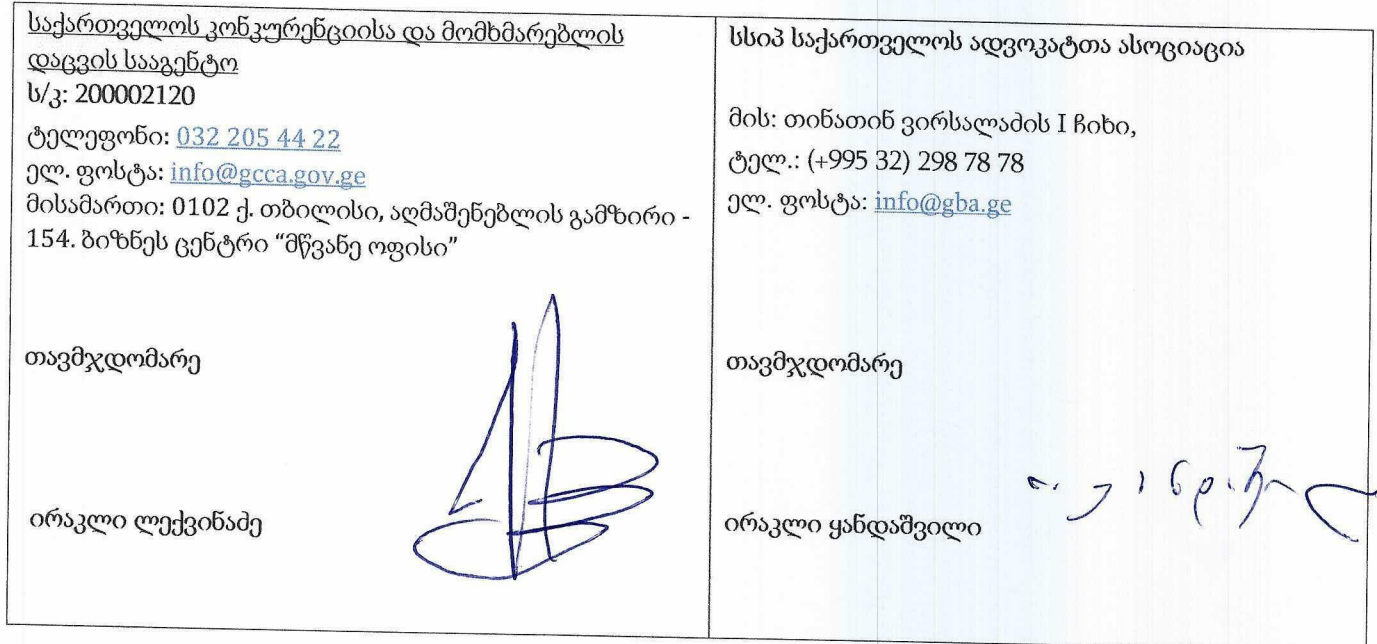 საქართველოს კონკურენციისა და მომხმარებლის
დაცვის სააგენტო
ს/კ: 200002120
ტელეფონი: 032 205 44 22
ელ. ფოსტა: info@gcca.gov.ge
მისამართი: 0102 ქ. თბილისი, აღმაშენებლის გამზირი -
154. ბიზნეს ცენტრი “მწვანე ოფისი”
თავმჯდომარე
ირაკლი ლექვინაძე
სსიპ საქართველოს ადვოკატთა ასოციაცია
მის: თინათინ ვირსალაძის I ჩიხი,
ტელ.: (+995 32) 298 78 78
ელ. ფოსტა: info@gba.ge
თავმჯდომარე
ირაკლი ყანდაშვილი